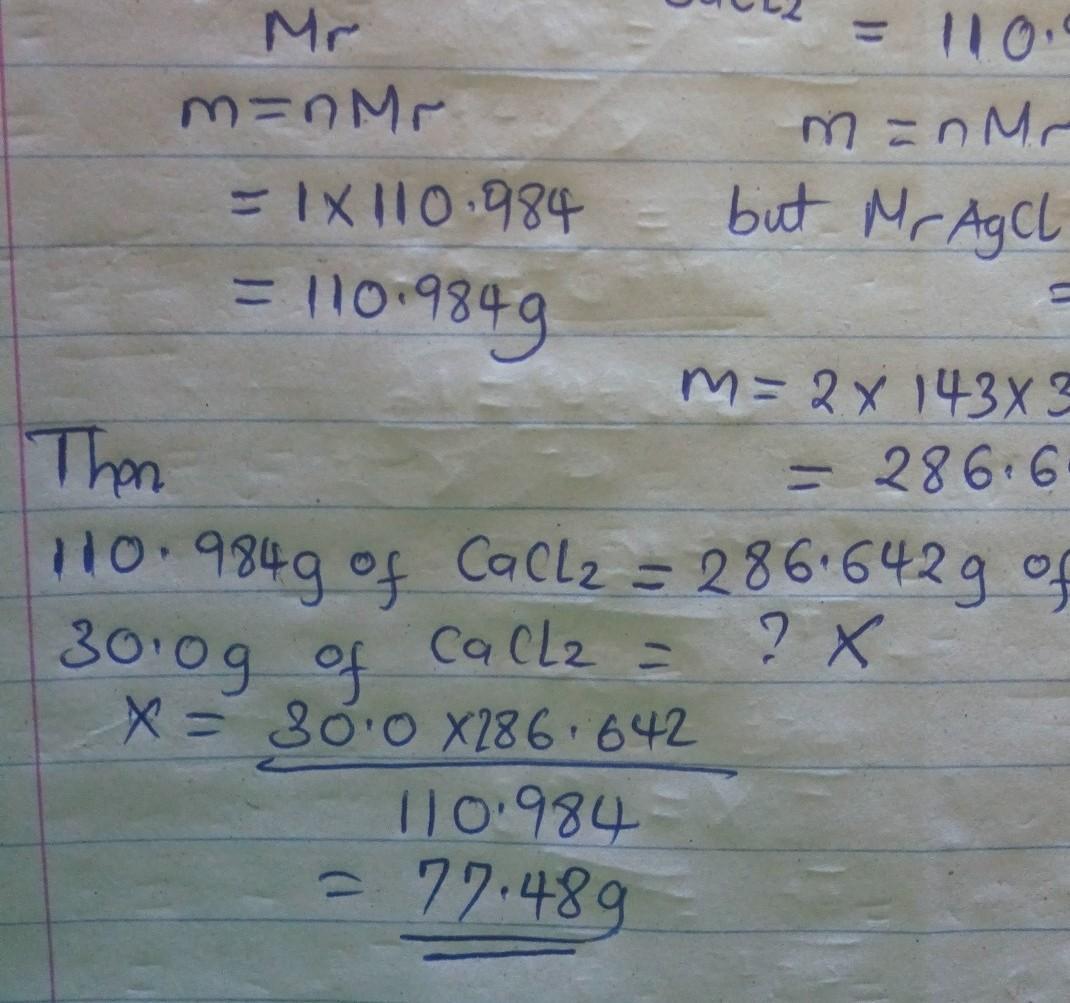 Mr CaCl2 = 110.9
m=nMr m = nMr
= 1x110.984 but Mr AgCl
= 110.984g =
m= 2x 143x3
Then = 286.6
110.984g of CaCl2 = 286.642g of
30.0g of CaCl2 = ? X
X = 30.0 x286.642
110.984
= 77.48g